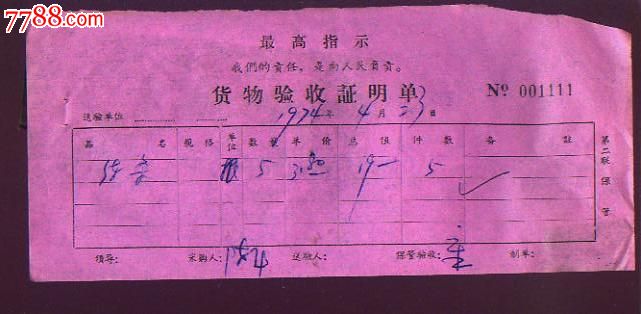 7788.com
中国收藏热线
最高指示
我們的責任，是向人民負責。
货物验收証明单 № 001111
送驗单位 1974年4月23日
品名 規格 单位 数量 单价 总值 件数 备註
5 3.80 19— 5
第二联 保管
領导： 采购人： 送驗人： 保管驗收： 制单：